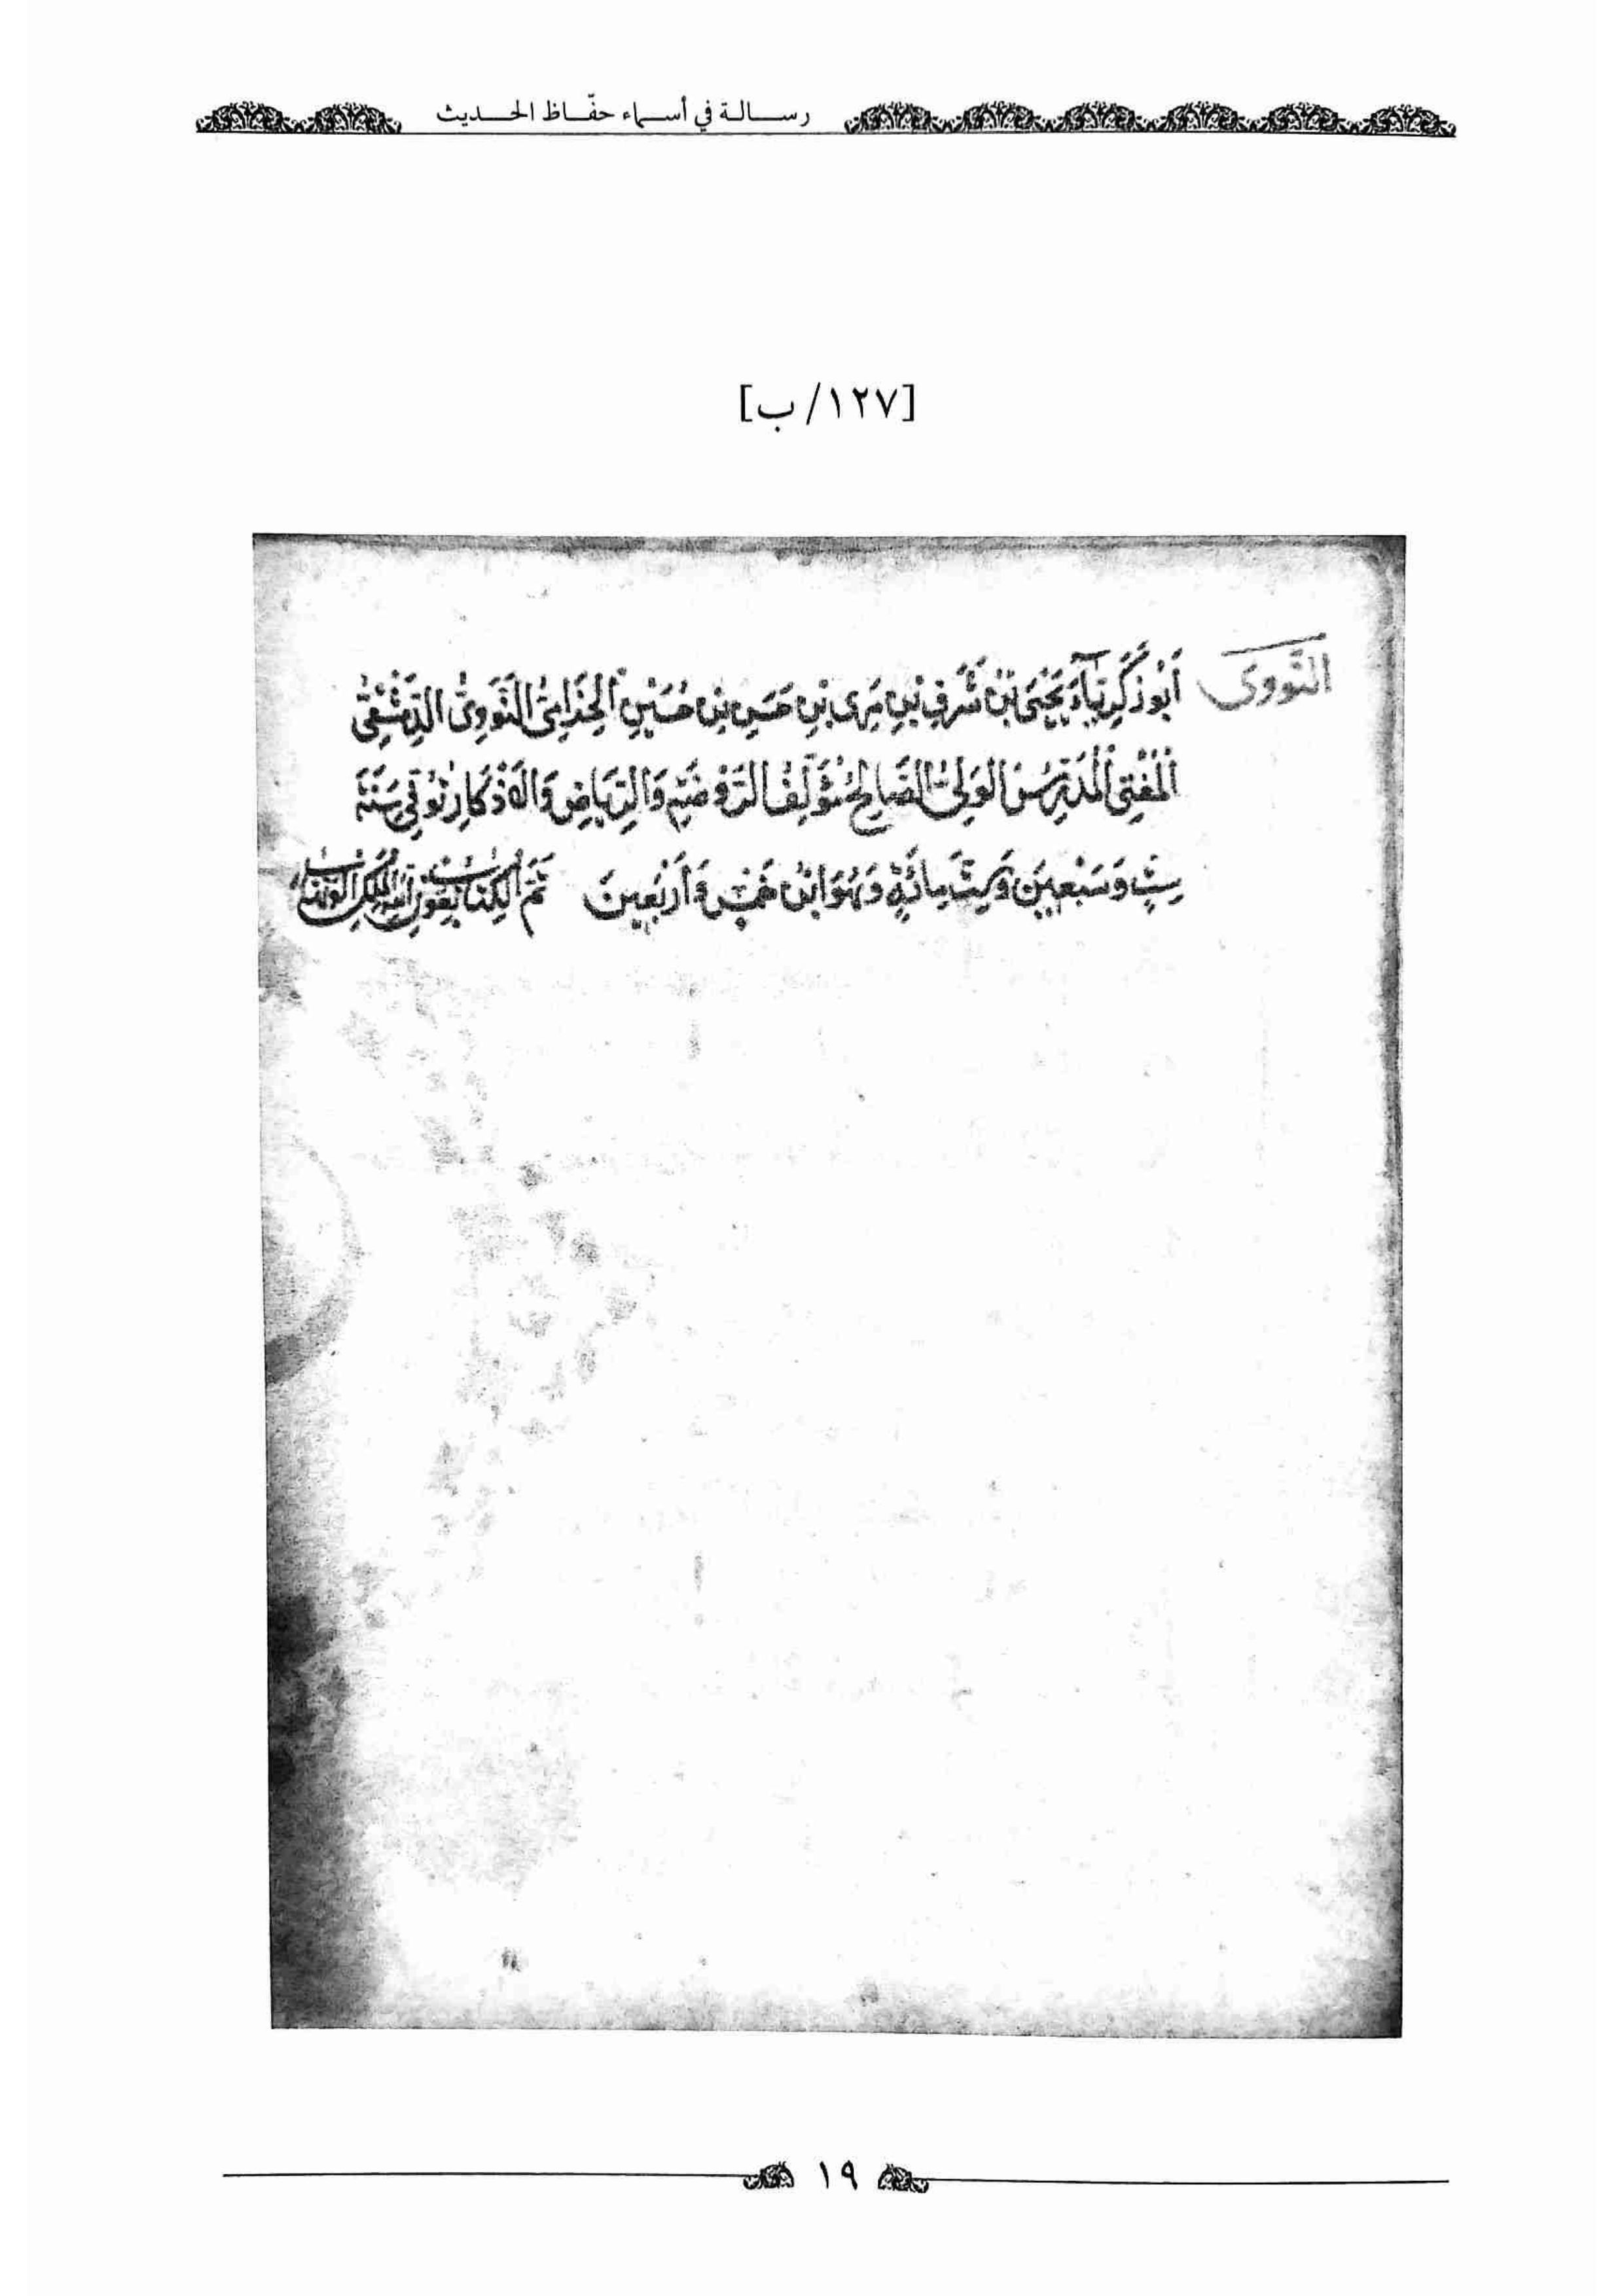 رسالة في أسماء حفّاظ الحديث
[١٢٧/ ب]
النووى
أَبُو زَكَرِيَّاءَ يَحْيَى بْنُ شَرَفِ بْنِ مِرَى بْنِ حَسَنِ بْنِ حُسَيْنِ الْحِذَامِىُّ النَّوَوِىُّ الدِّمَشْقِىُّ
الْمُفْتِى الْمُدَرِّسُ الْوَلِىُّ الصَّالِحُ مُؤَلِّفُ الرَّوْضَةِ وَالرِّيَاضِ وَالْأَذْكَارِ تُوُفِّىَ سَنَةَ
سِتٍّ وَسَبْعِينَ وَسِتِّمِائَةٍ وَهُوَ ابْنُ خَمْسٍ وَأَرْبَعِينَ تَمَّ الْكِتَابُ بِعَوْنِ اللهِ الْمَلِكِ الْوَهَّابِ
١٩